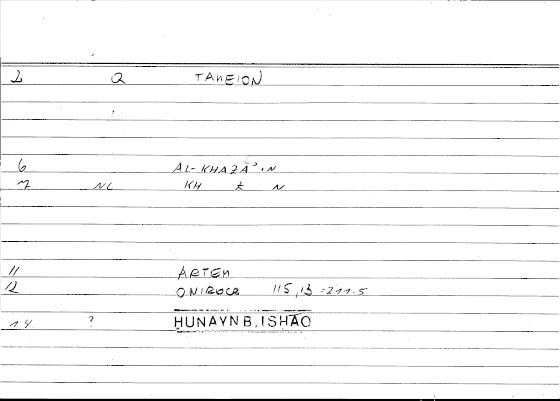 1 Q TAMEION
6 AL-KHAZĀ'IN
7 NC KH Z N
11 ARTEM
12 ONIROCR 115,13 = 211.5
14 ? HUNAYN B. ISHAQ